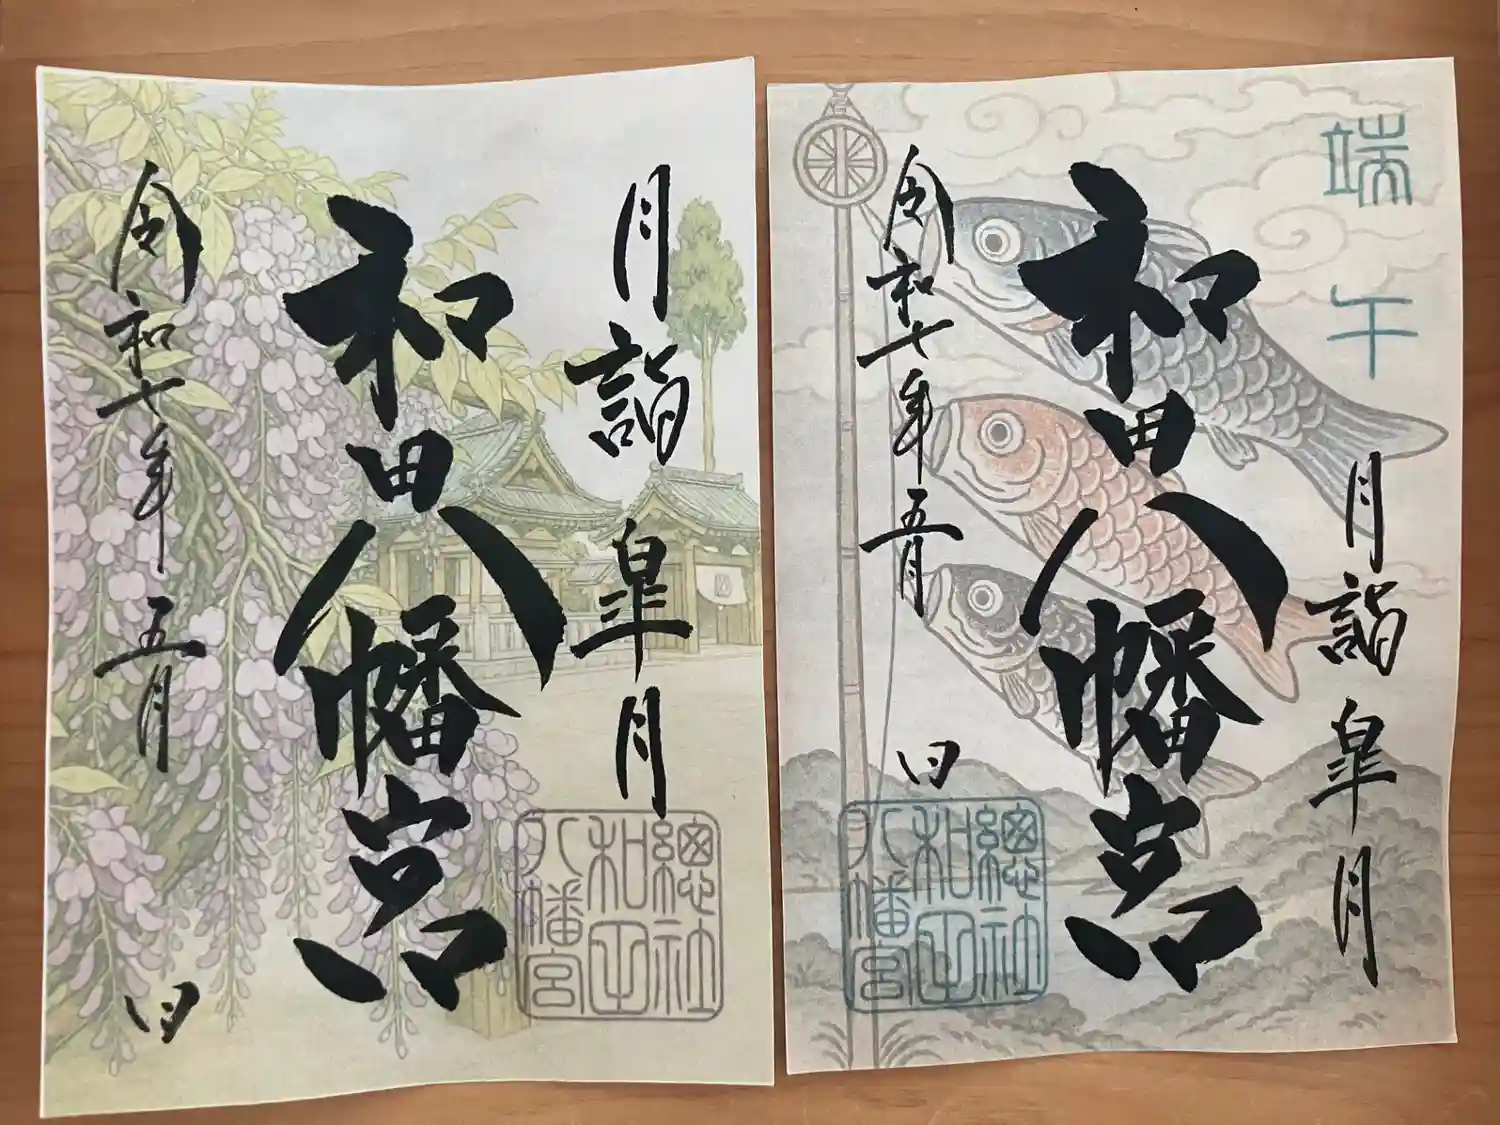 月詣 皐月
和田八幡宮
令和七年五月 日
總社
和田
八幡宮
端午
月詣 皐月
和田八幡宮
令和七年五月 日
總社
和田
八幡宮